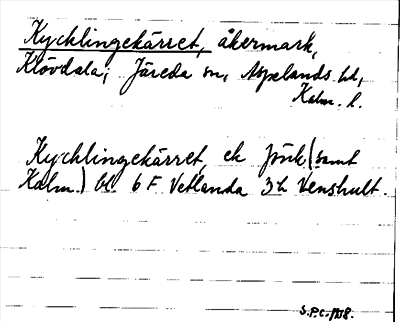 Kycklingekärret, åkermark,
Klövdala, Järeda sn, Aspelands hd,
Kalm. l.
Kycklingekärret, ek Jönk (samt
Kalm.) bl. 6 F Vetlanda 3h Venshult.
S.P.C.